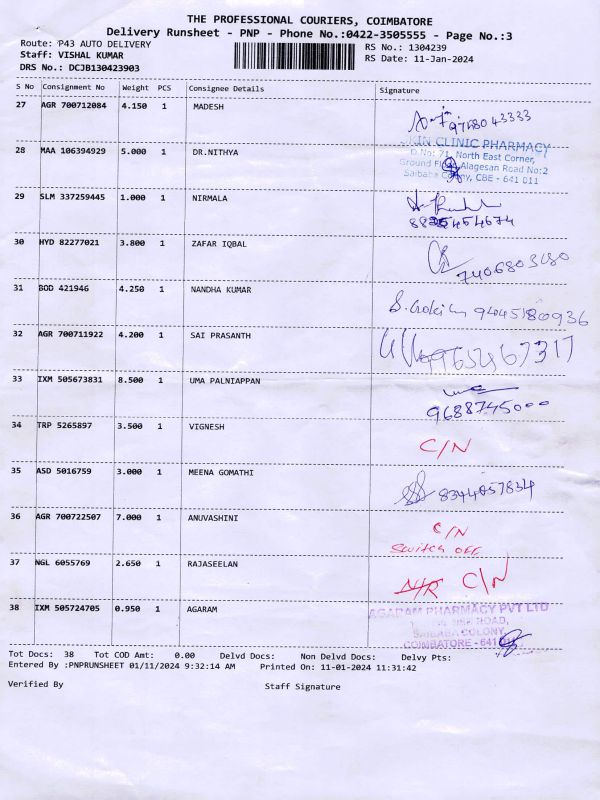 THE PROFESSIONAL COURIERS, COIMBATORE
Delivery Runsheet - PNP - Phone No.:0422-3505555 - Page No.:3
Route: P43 AUTO DELIVERY RS No.: 1304239
Staff: VISHAL KUMAR RS Date: 11-Jan-2024
DRS No.: DCJB130423903
S No Consignment No Weight PCS Consignee Details Signature
27 AGR 700712084 4.150 1 MADESH
9768043333
28 MAA 106394929 5.000 1 DR.NITHYA
SKIN CLINIC PHARMACY
D.No: 71, North East Corner,
Ground Alagesan Road No:2
Saibaba Colony, CBE - 641 011
29 SLM 337259445 1.000 1 NIRMALA
8825454674
30 HYD 82277021 3.800 1 ZAFAR IQBAL
7406803680
31 BOD 421946 4.250 1 NANDHA KUMAR
9445180936
32 AGR 700711922 4.200 1 SAI PRASANTH
33 IXM 505673831 8.500 1 UMA PALNIAPPAN
9688745000
34 TRP 5265897 3.500 1 VIGNESH
C/N
35 ASD 5016759 3.000 1 MEENA GOMATHI
8344057834
36 AGR 700722507 7.000 1 ANUVASHINI
C/N
Switch OFF
37 NGL 6055769 2.650 1 RAJASEELAN
N/R C/N
38 IXM 505724705 0.950 1 AGARAM
AGARAM PHARMACY PVT LTD
ROAD,
SAIBABA COLONY,
COIMBATORE - 641
Tot Docs: 38 Tot COD Amt: 0.00 Delvd Docs: Non Delvd Docs: Delvy Pts:
Entered By :PNPRUNSHEET 01/11/2024 9:32:14 AM Printed On: 11-01-2024 11:31:42
Verified By Staff Signature